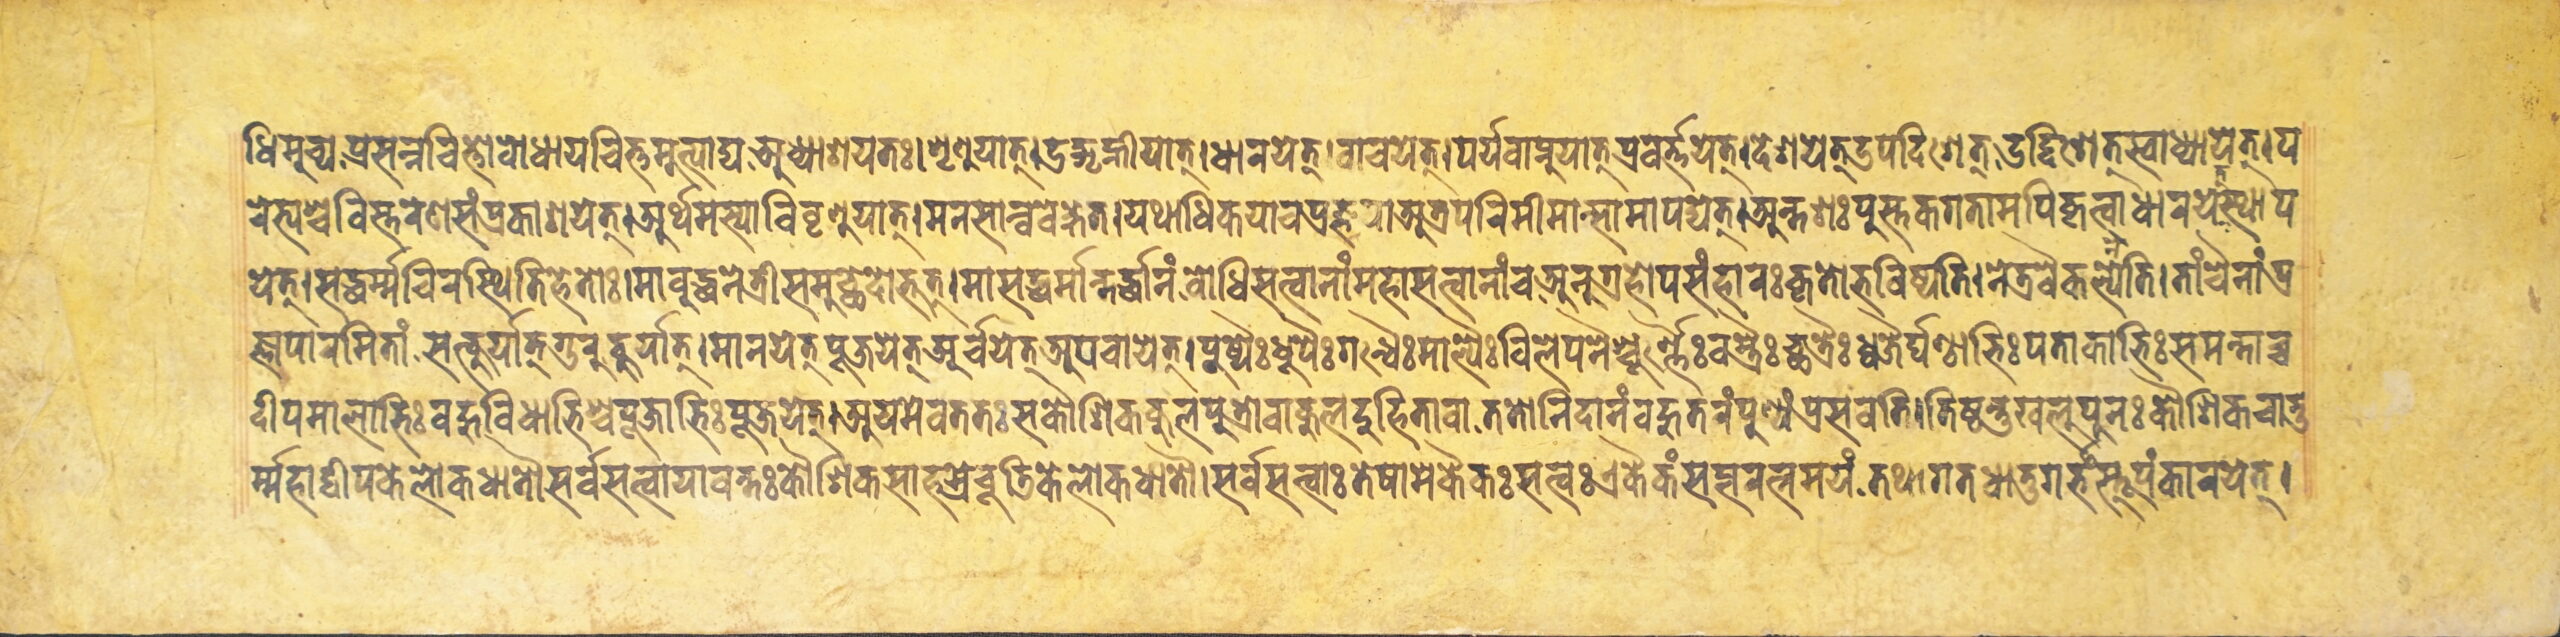 धिमुच्य प्रसन्नचित्तो बोधाय चित्तमुत्पाद्य अध्याशयतः। शृणुयात्। उद्गृह्णीयात्। धारयेत्। वाचयेत्। पर्यवाप्नुयात् प्रवर्त्तयेत्। देशयेत् उपदिशेत् उद्दिशेत् स्वाध्यायेत्। प
रेभ्यश्च विस्तरेण संप्रकाशयेत्। अर्थमस्या विवृणुयात्। मनसान्ववेक्षेत। यथाधिकया च प्रज्ञया अत्र परिमीमान्सामापद्येत्। अन्तशः पुस्तकगतामपि कृत्वा धारयेत् स्थाप
येत्। सद्धर्म्मचिरस्थितिहेतोः। मा बुद्धनेत्रीसमुच्छेदो भूत्। मा सद्धर्मान्तर्द्धानं बोधिसत्वानां महासत्वानां च अनुग्रहोपसंहारः कृतो भविष्यति। नेत्र्यवैकल्येनेति। तां चैनां प्र
ज्ञापारमितां सत्कुर्यात् गुरुकुर्यात्। मानयेत् पूजयेत् अर्चयेत् अपचायेत्। पुष्पैः धूपैः गन्धैः माल्यैः विलेपनैश्चूर्ण्णैः वस्त्रैः च्छत्रैः ध्वजैर्घण्ठाभिः पताकाभिः समन्ताच्च
दीपमालाभिः बहुविधाभिश्च पूजाभिः पूजयेत्। अयमेव ततः स कौशिक कुलपुत्रो वा कुलदुहिता वा ततो निदानं बहुतरं पुण्यं प्रसवति। तिष्ठन्तु खलु पुनः कौशिक चातु
र्म्महाद्वीपके लोकधातौ सर्वसत्वा यावन्तः कौशिक साहस्रे चूडिके लोकधातौ। सर्वसत्वाः तेषामेकैकः सत्वः एकैकं सप्तरत्नमयं तथागतधातुगर्भं स्तूपं कारयेत्।